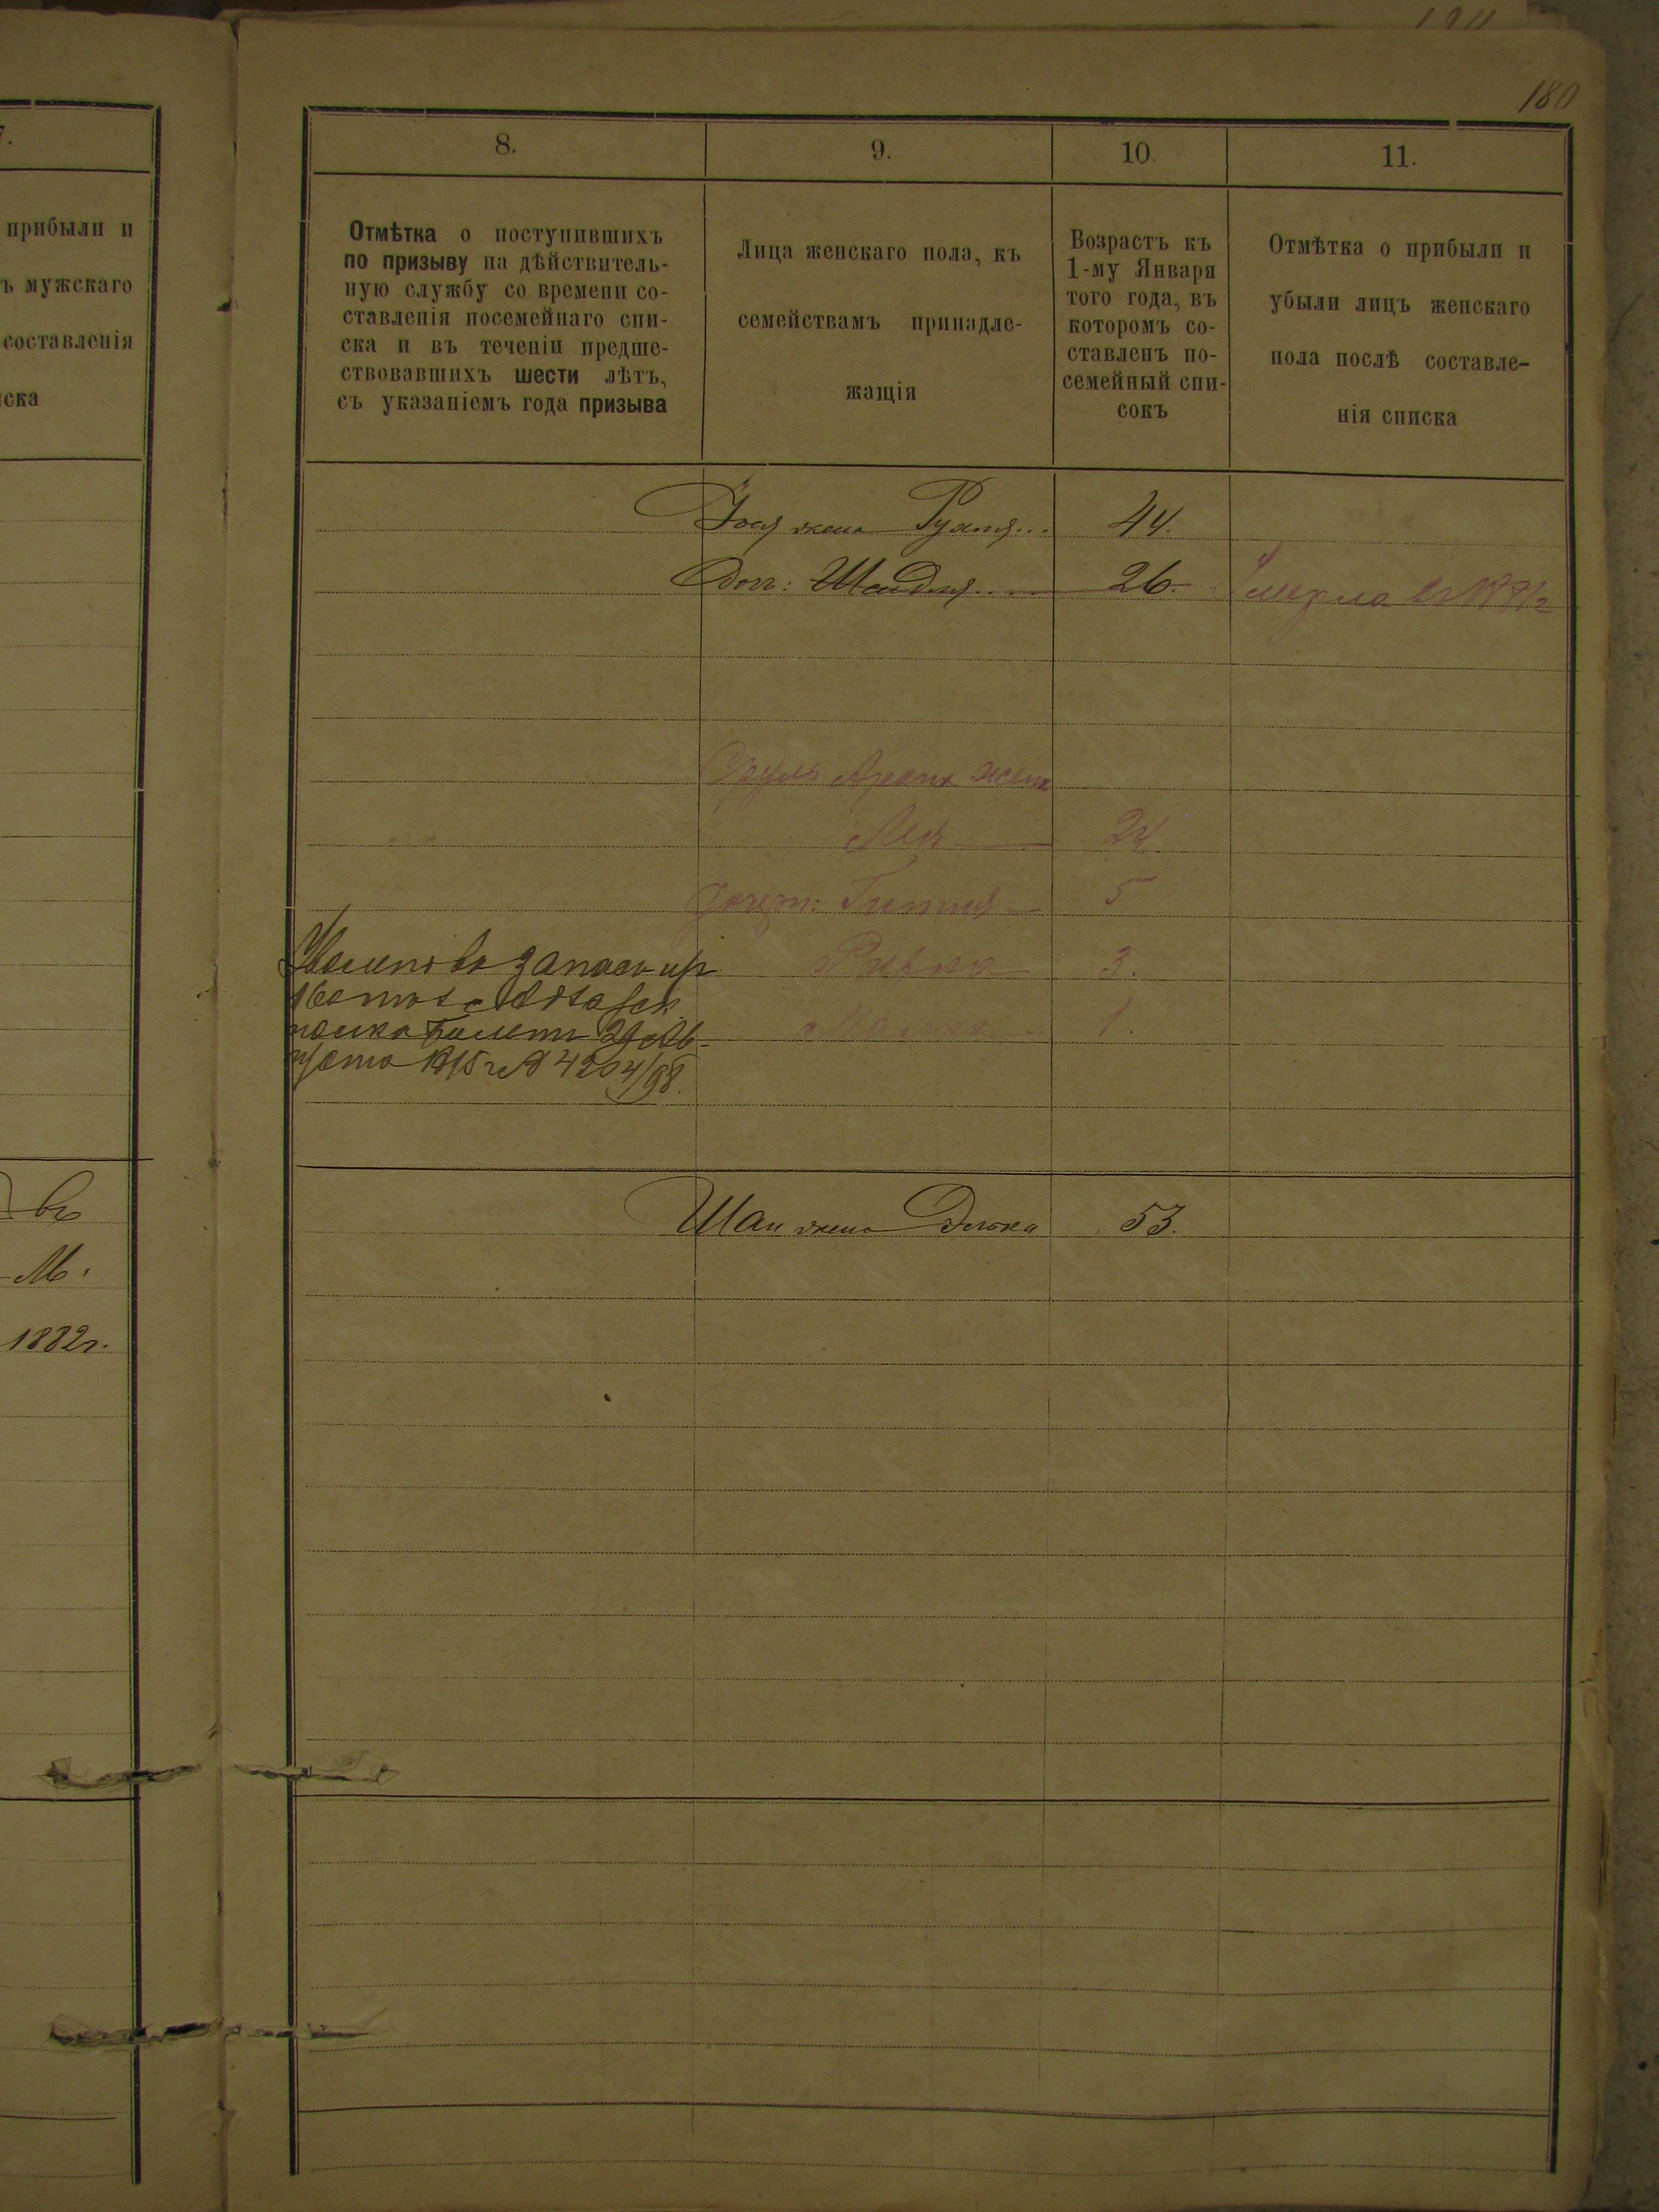 180
7.
прибыли и
ъ мужскаго
составленія
ска
въ
М.
1882 г.
8.
9.
10.
11.
Отмѣтка о поступившихъ
по призыву на дѣйствитель-
ную службу со времени со-
ставленія посемейнаго спи-
ска и въ теченіи предше-
ствовавшихъ шести лѣтъ,
съ указаніемъ года призыва
Лица женскаго пола, къ
семействамъ принадле-
жащія
Возрастъ къ
1-му Января
того года, въ
которомъ со-
ставленъ по-
семейный спи-
сокъ
Отмѣтка о прибыли и
убыли лицъ женскаго
пола послѣ составле-
нія списка
жена 44.
Доч: Шейдля 26. Умерла въ
Арона жена
Лея 24.
Дочери: Гитля 5
Ривка 3.
Малка 1.
въ запасъ
полка билетъ 29 Ав-
густа № 4204/98.
жена 53.